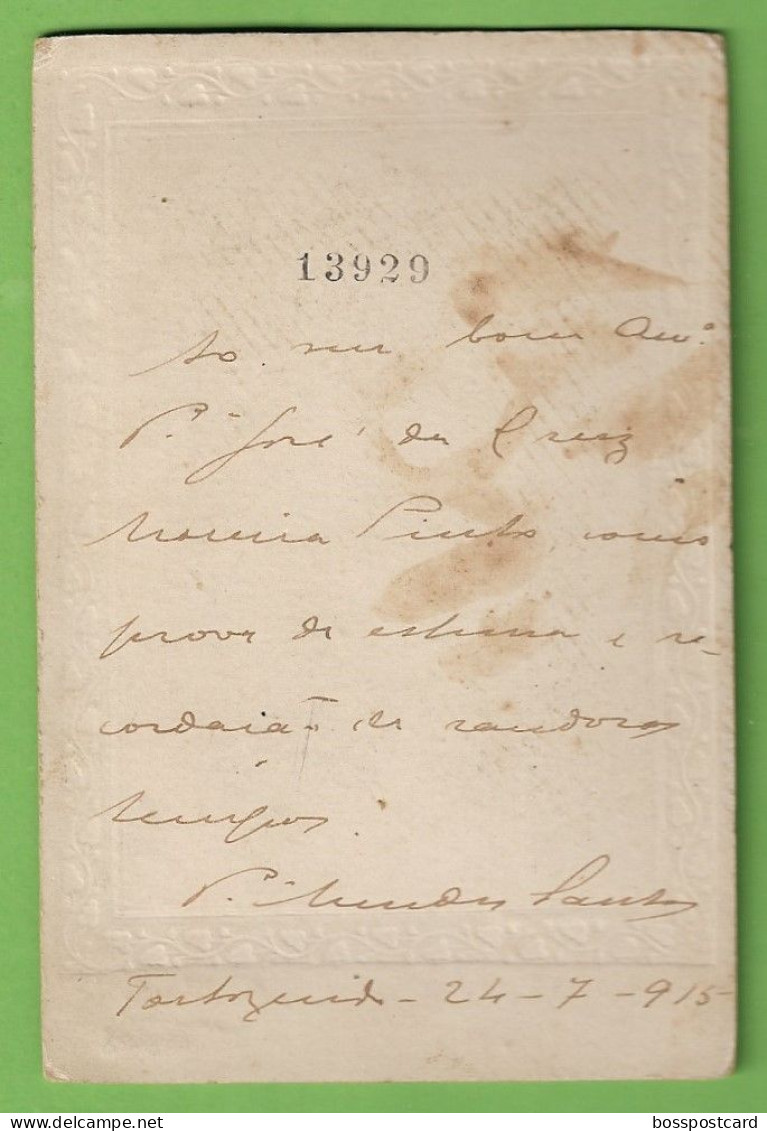 13929
Ao seu bom Amº.
P.e José da Cruz
Moreira Pinto como
prova de estima e re-
cordação de saudosos
tempos.
P.e Mendes Santos
Tortozendo - 24 - 7 - 915
bosspostcard